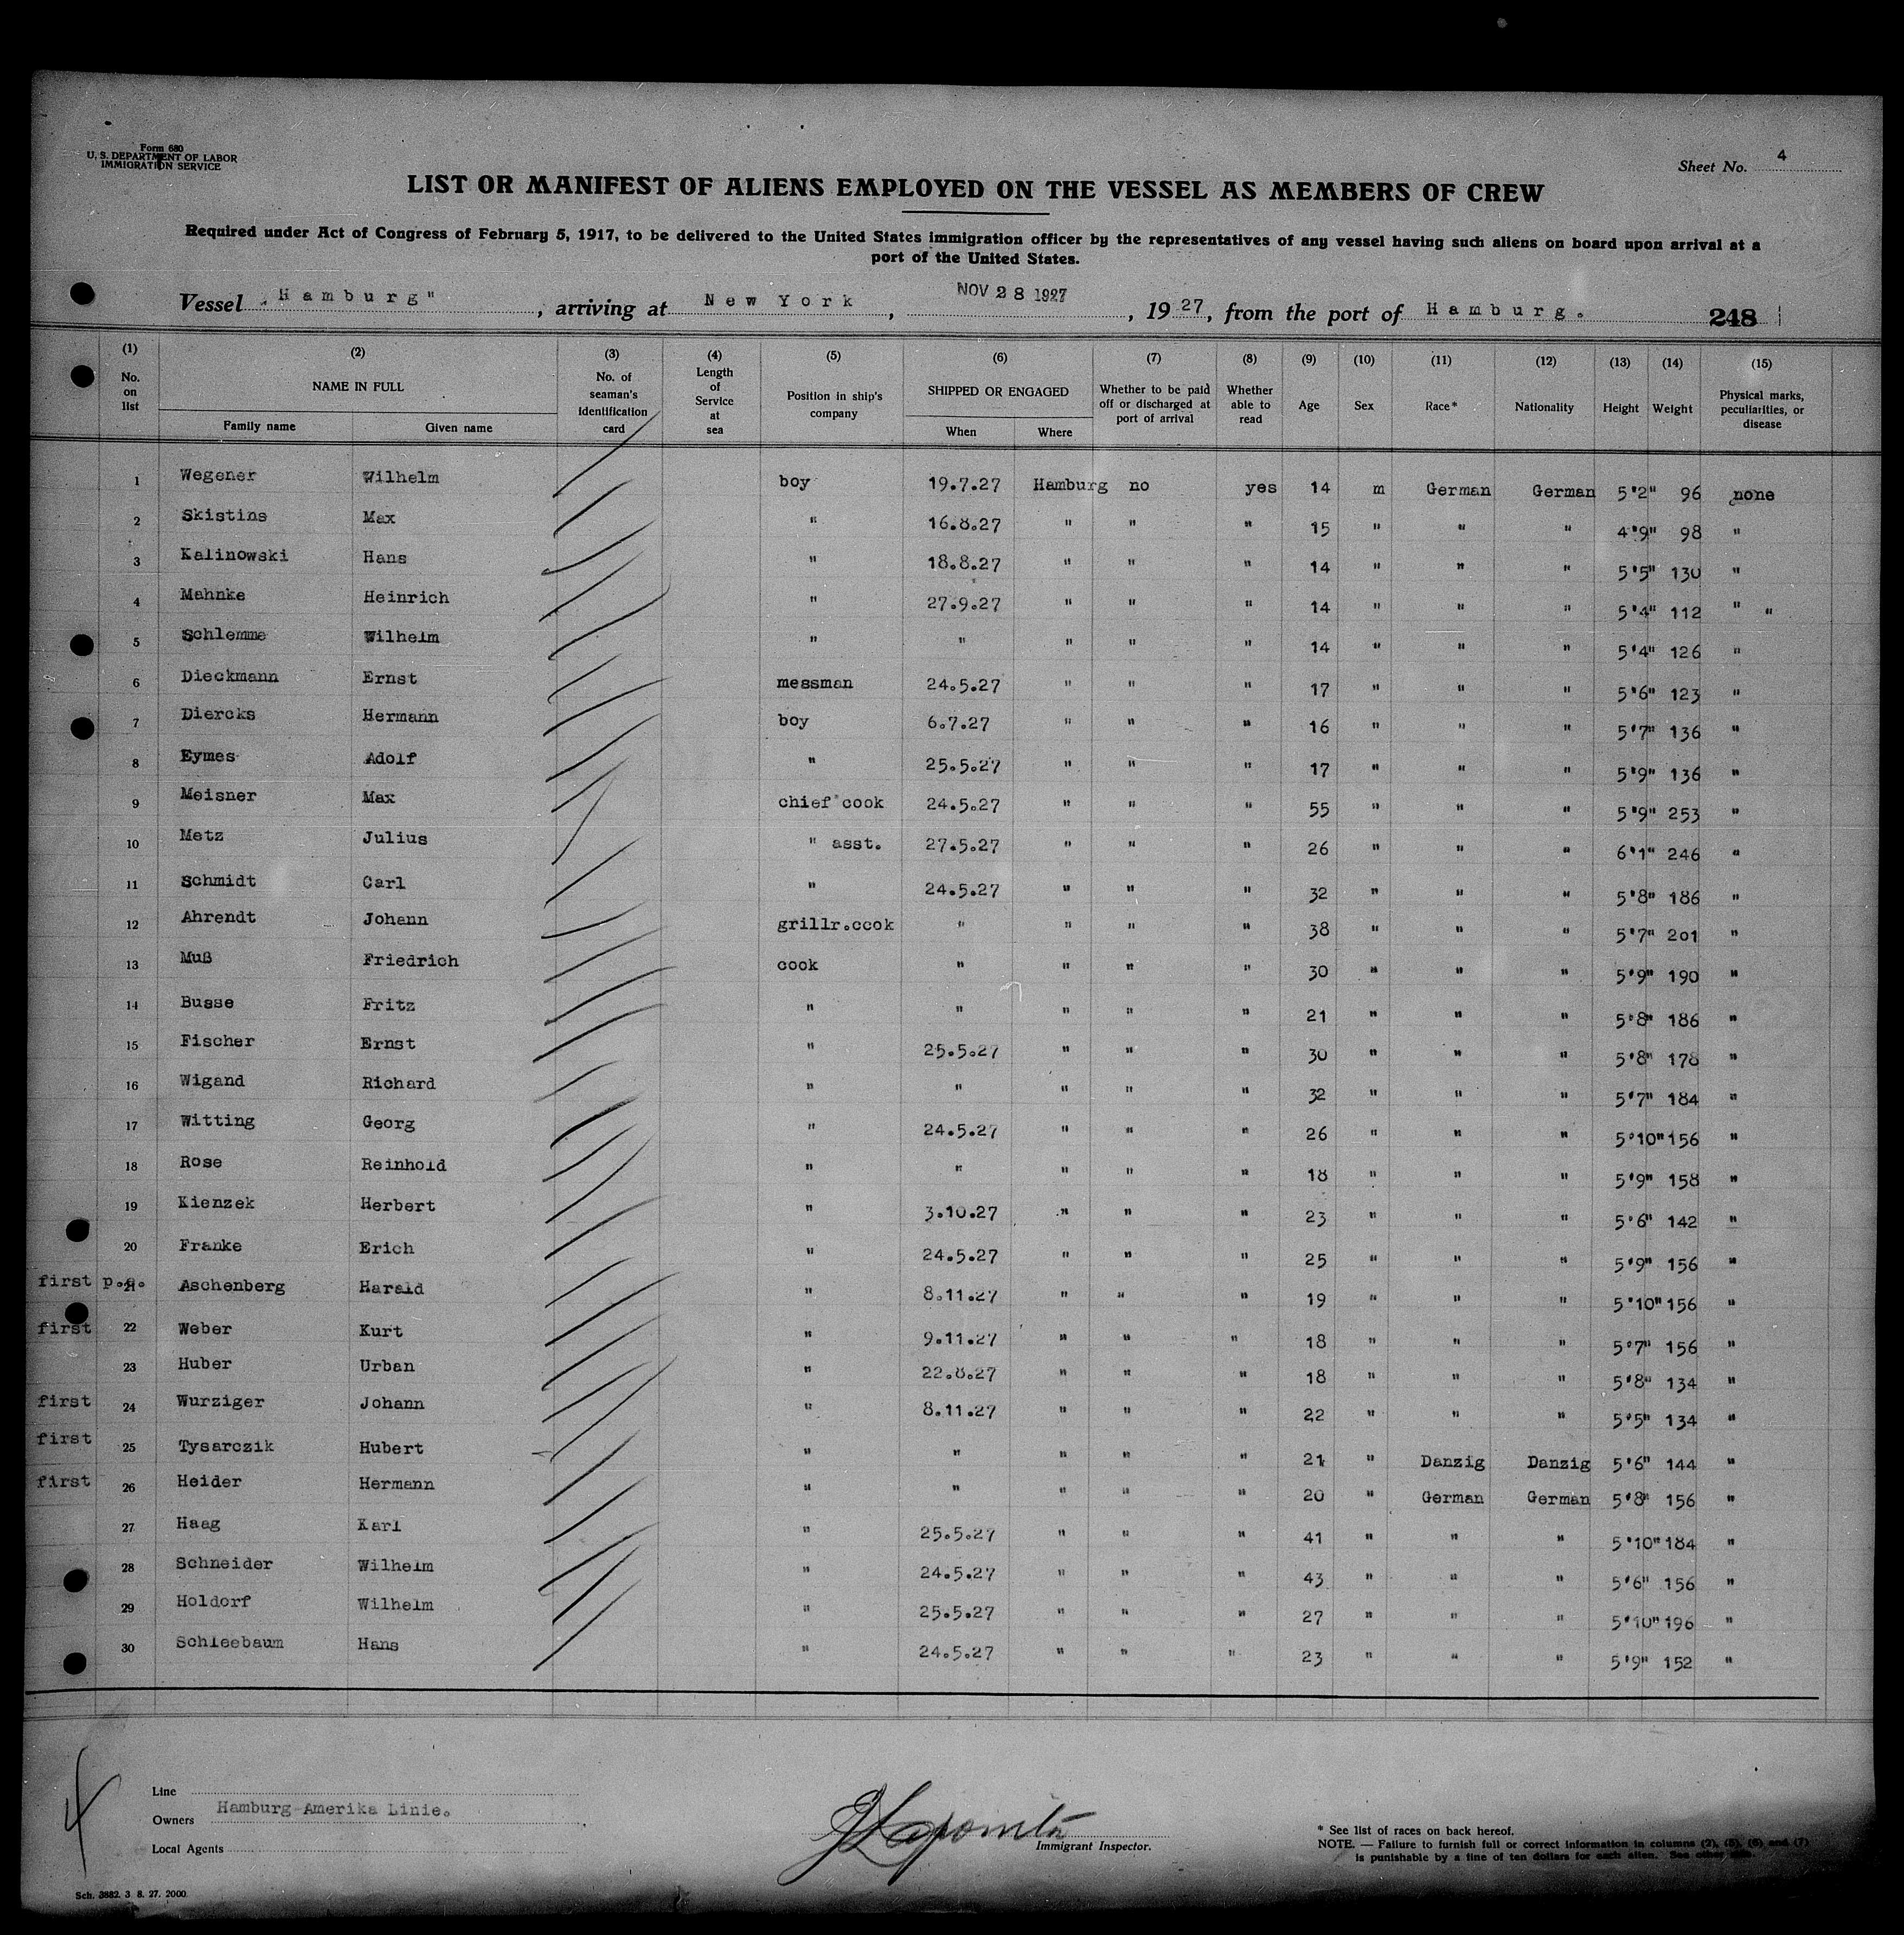 Form 680
U. S. DEPARTMENT OF LABOR
IMMIGRATION SERVICE
Sheet No. 4
LIST OR MANIFEST OF ALIENS EMPLOYED ON THE VESSEL AS MEMBERS OF CREW
Required under Act of Congress of February 5, 1917, to be delivered to the United States immigration officer by the representatives of any vessel having such aliens on board upon arrival at a
port of the United States.
Vessel „Hamburg", arriving at New York, NOV 28 1927, 1927, from the port of Hamburg. 248
(1) (2) (3) (4) (5) (6) (7) (8) (9) (10) (11) (12) (13) (14) (15)
No. on list NAME IN FULL Family name Given name No. of seaman's identification card Length of Service at sea Position in ship's company SHIPPED OR ENGAGED When Where Whether to be paid off or discharged at port of arrival Whether able to read Age Sex Race* Nationality Height Weight Physical marks, peculiarities, or disease
1 Wegener Wilhelm boy 19.7.27 Hamburg no yes 14 m German German 5'2" 96 none
2 Skistins Max " 16.8.27 " " " 15 " " " 4'9" 98 "
3 Kalinowski Hans " 18.8.27 " " " 14 " " " 5'5" 130 "
4 Mahnke Heinrich " 27.9.27 " " " 14 " " " 5'4" 112 " "
5 Schlemme Wilhelm " " " " " 14 " " " 5'4" 126 "
6 Dieckmann Ernst messman 24.5.27 " " " 17 " " " 5'6" 123 "
7 Diercks Hermann boy 6.7.27 " " " 16 " " " 5'7" 136 "
8 Eymes Adolf " 25.5.27 " " " 17 " " " 5'9" 136 "
9 Meisner Max chief cook 24.5.27 " " " 55 " " " 5'9" 253 "
10 Metz Julius " asst. 27.5.27 " " " 26 " " " 6'1" 246 "
11 Schmidt Carl " 24.5.27 " " " 32 " " " 5'8" 186 "
12 Ahrendt Johann grillr.cook " " " " 38 " " " 5'7" 201 "
13 Muß Friedrich cook " " " " 30 " " " 5'9" 190 "
14 Busse Fritz " " " " " 21 " " " 5'8" 186 "
15 Fischer Ernst " 25.5.27 " " " 30 " " " 5'8" 178 "
16 Wigand Richard " " " " " 32 " " " 5'7" 184 "
17 Witting Georg " 24.5.27 " " " 26 " " " 5'10" 156 "
18 Rose Reinhold " " " " " 18 " " " 5'9" 158 "
19 Kienzek Herbert " 3.10.27 " " " 23 " " " 5'6" 142 "
20 Franke Erich " 24.5.27 " " " 25 " " " 5'9" 156 "
first p.a. 21 Aschenberg Harald " 8.11.27 " " " 19 " " " 5'10" 156 "
first 22 Weber Kurt " 9.11.27 " " " 18 " " " 5'7" 156 "
23 Huber Urban " 22.8.27 " " " 18 " " " 5'8" 134 "
first 24 Wurziger Johann " 8.11.27 " " " 22 " " " 5'5" 134 "
first 25 Tysarczik Hubert " " " " " 21 " Danzig Danzig 5'6" 144 "
first 26 Heider Hermann " " " " " 20 " German German 5'8" 156 "
27 Haag Karl " 25.5.27 " " " 41 " " " 5'10" 184 "
28 Schneider Wilhelm " 24.5.27 " " " 43 " " " 5'6" 156 "
29 Holdorf Wilhelm " 25.5.27 " " " 27 " " " 5'10" 196 "
30 Schleebaum Hans " 24.5.27 " " " 23 " " " 5'9" 152 "
4
Line
Owners Hamburg-Amerika Linie.
Local Agents
Immigrant Inspector.
* See list of races on back hereof.
NOTE. — Failure to furnish full or correct information in columns (2), (5), (6) and (7)
is punishable by a fine of ten dollars for each alien. See other side.
Sch. 3882. 3. 8. 27. 2000